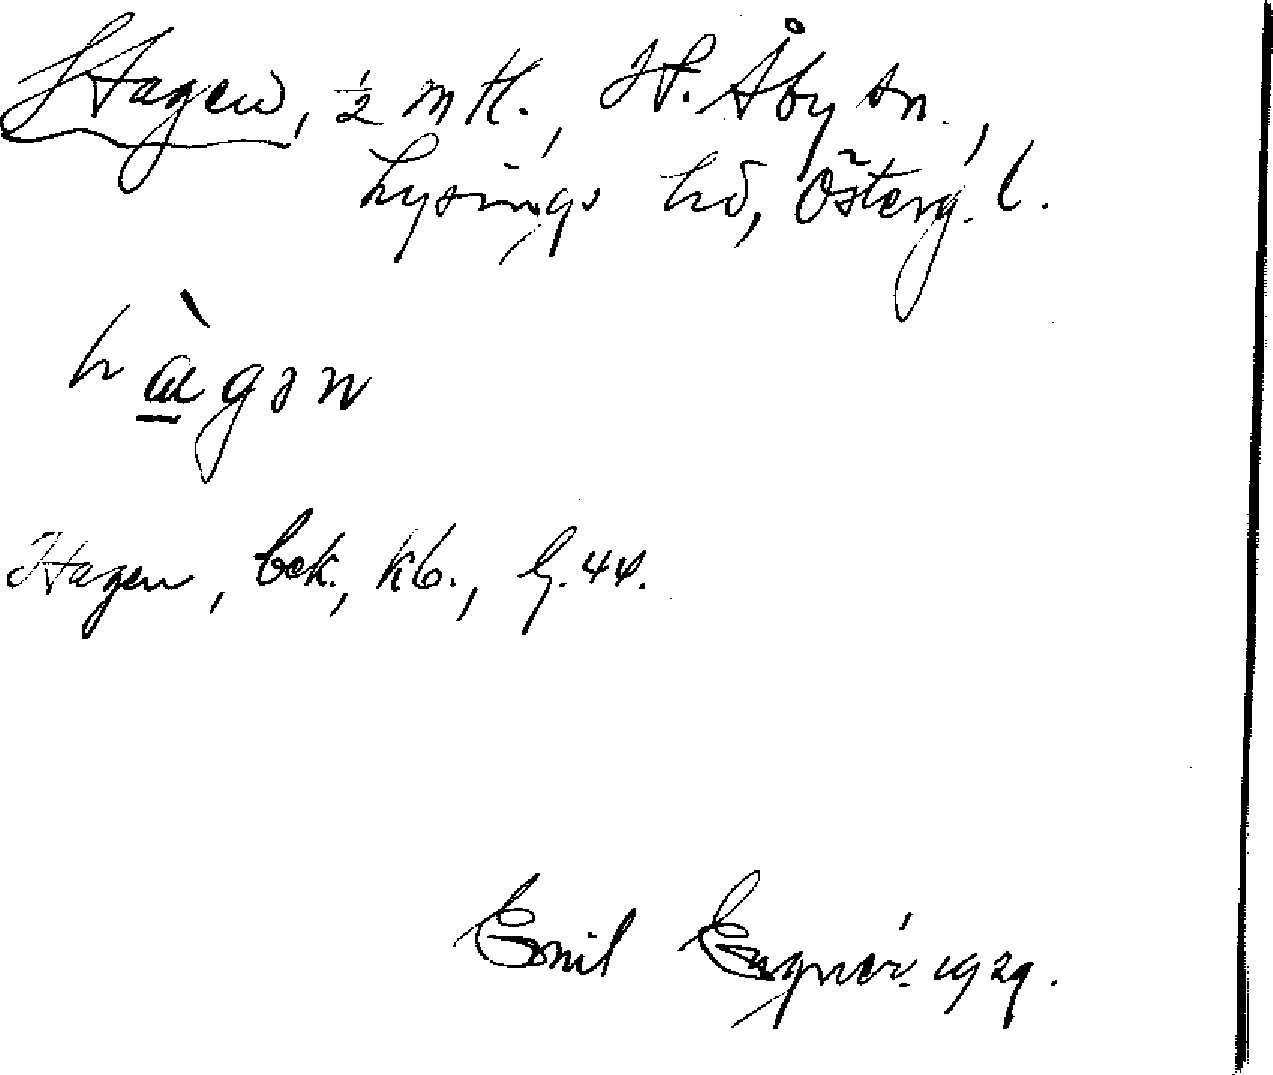 Hagen, ½ mtl., H. Åby sn.,
Lysings hd, Österg. l.
hàgən
Hagen, bek., kb., G. 44.
Emil Engnér. 1929.